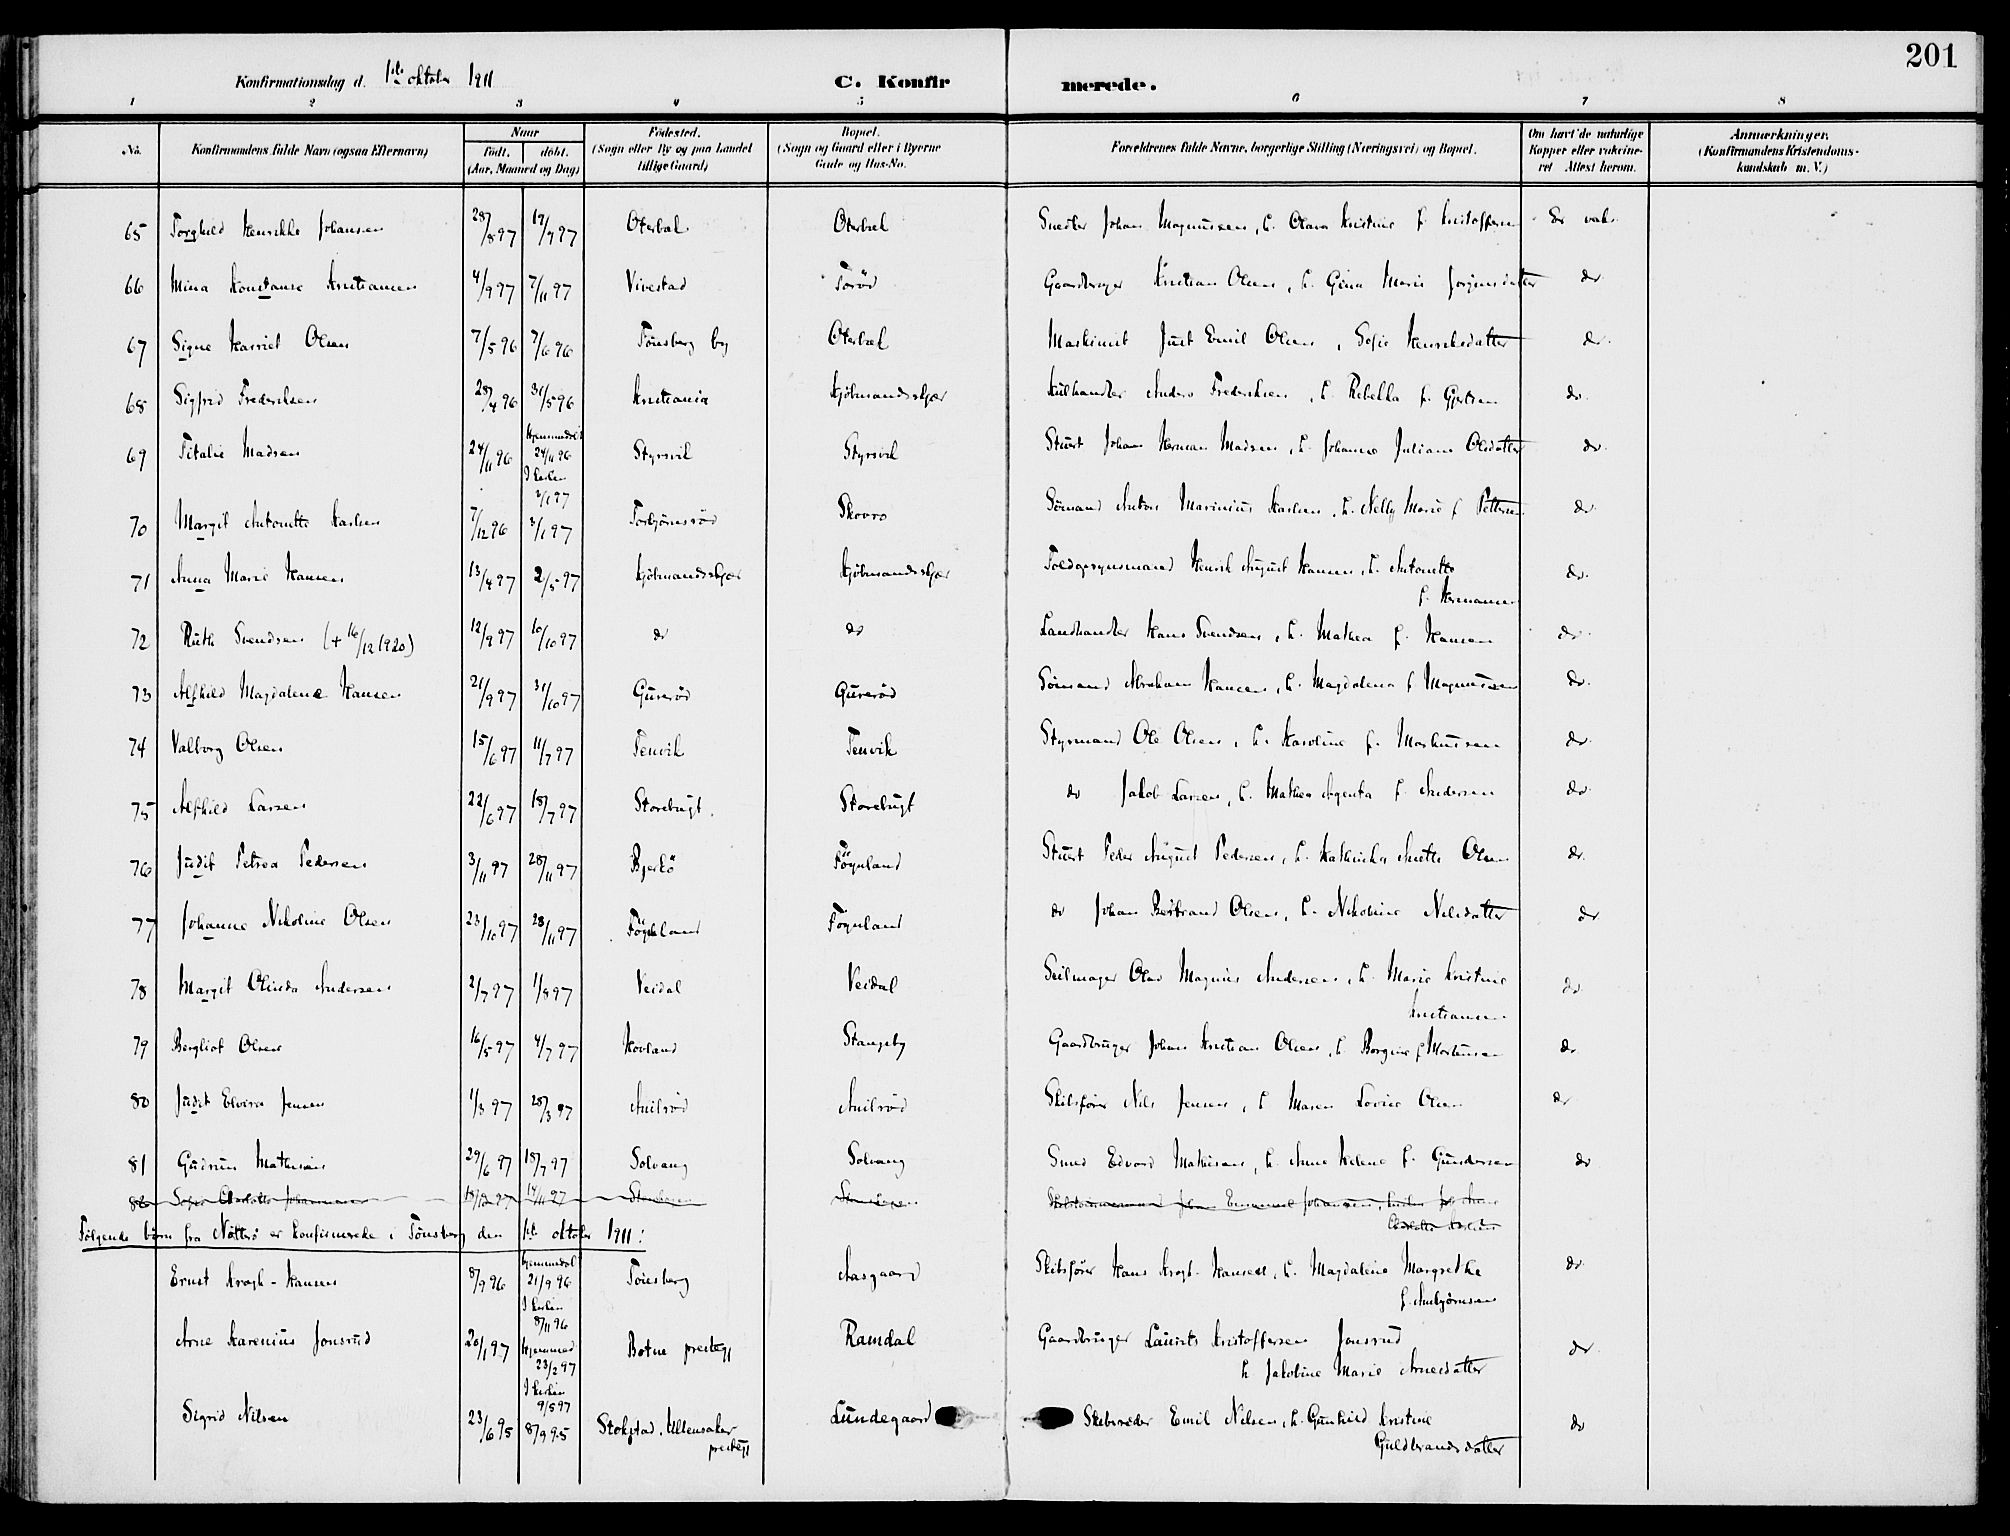 201
Konfirmationsdag d. 1ste oktober 1911 C. Konfirmerede.
1 2 3 4 5 6 7 8
No. Konfirmandens fulde Navn (ogsaa Efternavn) Naar født. døbt. (Aar, Maaned og Dag) Fødested. (Sogn eller By og paa Landet tillige Gaard) Bopæl. (Sogn og Gaard eller i Byerne Gade og Hus-No. Forældrenes fulde Navne, borgerlige Stilling (Næringsvei) og Bopæl. Om havt de naturlige Kopper eller vakcineret Attest herom. Anmærkninger. (Konfirmandens Kristendomskundskab m. V.)
65 Torghild Henrikke Johansen 28/8 97 19/9 97 Oterbæk Oterbæk Snedker Johan Magnussen, h. Olava Kristine f. Kristoffersen Er vak.
66 Mina Konstanse Kristiansen 4/9 97 7/11 97 Vivestad Torød Gaardbruger Kristian Olsen, h. Gina Marie Jørgensdatter do
67 Signe Harriet Olsen 7/5 96 7/6 96 Tønsberg by Oterbæk Maskinist Just Emil Olsen, Sofie Henriksdatter do.
68 Sigfrid Frederiksen 28/4 96 31/5 96 Kristiania Kjøbmandsskjær Kulhandler Anders Frederiksen, h. Rebekka f. Gjertsen do.
69 Titalie Madsen 24/11 96 Hjemmedøbt 24/11 96 I kirken 2/1 97 Styrsvik Styrsvik Stuert Johan Herman Madsen, h. Johanne Juliane Olsdatter do.
70 Margit Antonette Karlsen 7/12 96 3/1 97 Torbjørnsrød Skovro Sømand Anton Marinius Karlsen, h. Nelly Marie f. Pettersen do.
71 Anna Marie Hansen 13/4 97 2/5 97 Kjøbmandsskjær Kjøbmandsskjær Toldopsynsmand Henrik August Hansen, h. Antonette f. Hermansen do.
72 Ruth Svendsen (+ 16/12 1920) 12/9 97 10/10 97 do do Landhandler Hans Svendsen, h. Mathea f. Hansen do.
73 Alfhild Magdalene Hansen 21/9 97 31/10 97 Gunerød Gunerød Sømand Abraham Hansen, h. Magdalena f. Magnussen do.
74 Valborg Olsen 15/6 97 11/7 97 Tenvik Tenvik Styrmand Ole Olsen, h. Karoline f. Markussen do.
75 Alfhild Larsen 22/6 97 18/7 97 Storebugt. Storebugt do Jakob Larsen, h. Mathea Agenta f. Andersen do.
76 Judit Petrea Pedersen 3/11 97 28/11 97 Bjerkø Føynland Stuert Peder August Pedersen, h. Kathinka Anette Olsen do.
77 Johanne Nikoline Olsen 23/10 97 28/11 97 Føynland Føynland do Johan Bertrand Olsen, h. Nikoline Nilsdatter do
78 Margit Olinda Andersen 2/7 97 1/8 97 Veidal Veidal Seilmager Olav Magnus Andersen, h. Marie Kristine Kristiansen do
79 Bergliot Olsen 16/5 97 4/7 97 Hovland Stangeby Gaardbruger Johan Kristian Olsen, h. Borgine f. Mortensen do
80 Judit Elvira Jensen 1/3 97 28/3 97 Anilrød Anilrød Skibsfører Nils Jensen, h. Maren Lovise Olsen do
81 Gudrun Mathisen 29/6 97 18/7 97 Solvang Solvang Smed Edvard Mathisen, h. Anne Helene f. Gundersen do
82 Charlotte Johannessen 14/11 97
Følgende børn fra Nøtterø er konfirmerede i Tønsberg den 1ste oktober 1911:
Ernst Krogh-Hansen 8/9 96 hjemmedøbt 21/9 96 I kirken 8/11 96 Tønsberg Aasgaard Skibsfører Hans Krogh-Hansen, h. Magdalene Margrethe f. Anbjørnsen do.
Arne Karenius Jonsrud 20/1 97 Hjemmed. 23/2 97 I kirken 9/5 97 Botne prestegj Ramdal Gaardbruger Laurits Kristoffersen Jonsrud h. Jakobine Marie Arnesdatter do.
Sigrid Nilsen 23/6 95 8/9 95 Stokstad, Ullensaker prestegj Lundegaard Skibsreder Emil Nilsen, h. Gunhild Kristine Guldbrandsdatter do